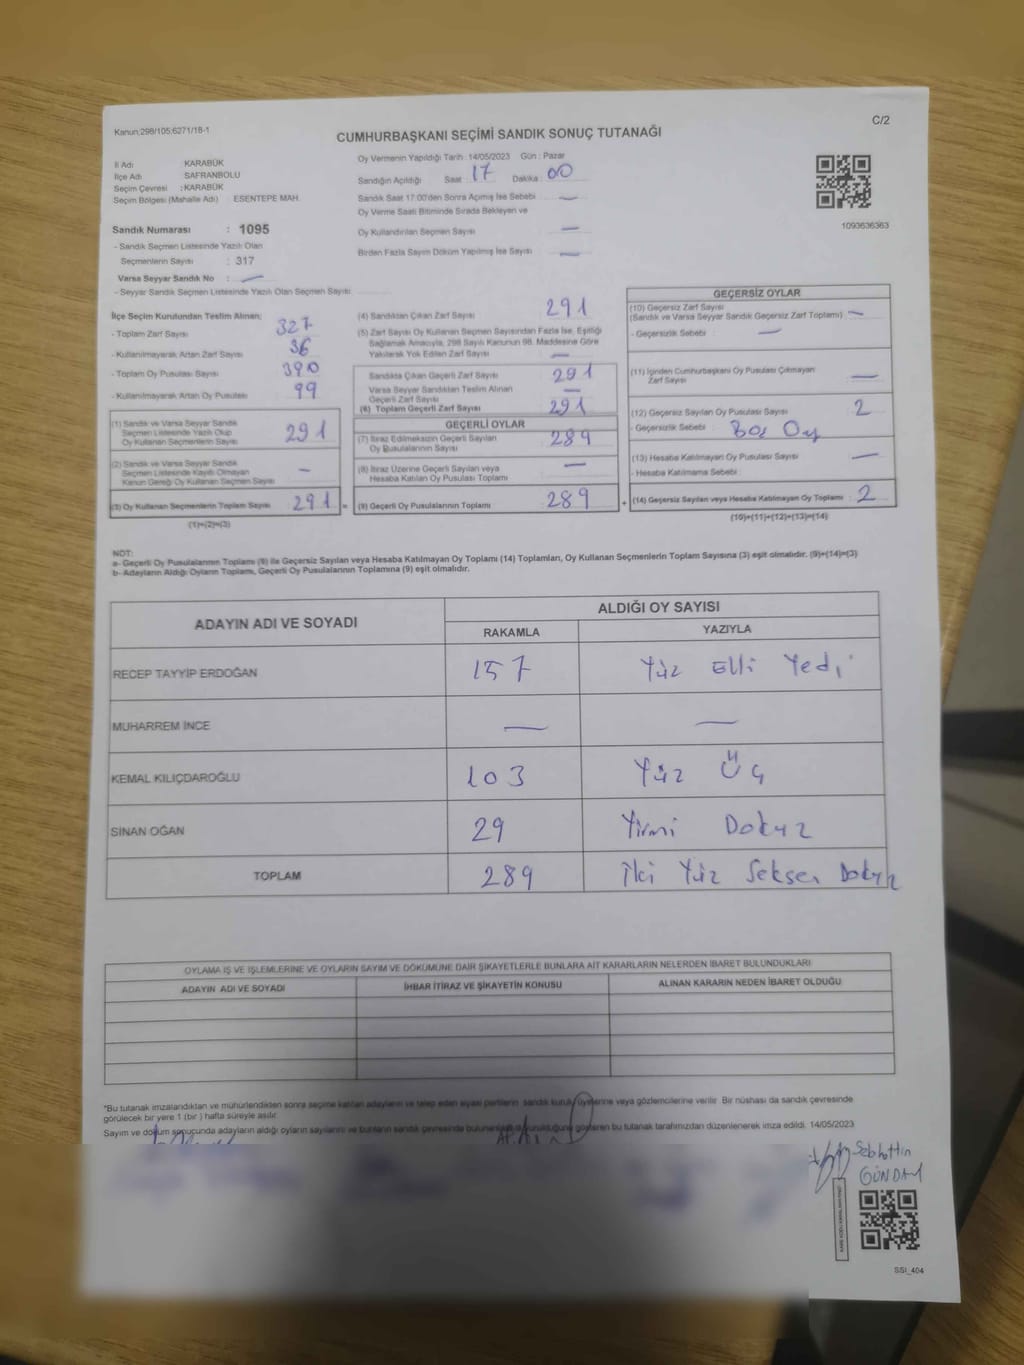 Kanun;298/105;6271/18-1
C/2
CUMHURBAŞKANI SEÇİMİ SANDIK SONUÇ TUTANAĞI
İl Adı KARABÜK
İlçe Adı SAFRANBOLU
Seçim Çevresi : KARABÜK
Seçim Bölgesi (Mahalle Adı) ESENTEPE MAH.
Oy Vermenin Yapıldığı Tarih :14/05/2023 Gün : Pazar
Sandığın Açıldığı Saat : 17 Dakika : 00
Sandık Saat 17:00'den Sonra Açılmış İse Sebebi : —
Oy Verme Saati Bitiminde Sırada Bekleyen ve
Oy Kullandırılan Seçmen Sayısı —
Birden Fazla Sayım Döküm Yapılmış İse Sayısı —
1093636363
Sandık Numarası : 1095
- Sandık Seçmen Listesinde Yazılı Olan
Seçmenlerin Sayısı : 317
Varsa Seyyar Sandık No : —
- Seyyar Sandık Seçmen Listesinde Yazılı Olan Seçmen Sayısı:
İlçe Seçim Kurulundan Teslim Alınan;
- Toplam Zarf Sayısı 327
- Kullanılmayarak Artan Zarf Sayısı 36
- Toplam Oy Pusulası Sayısı 390
- Kullanılmayarak Artan Oy Pusulası 99
(1) Sandık ve Varsa Seyyar Sandık
Seçmen Listesinde Yazılı Olup
Oy Kullanan Seçmenlerin Sayısı 291
(2) Sandık ve Varsa Seyyar Sandık
Seçmen Listesinde Kayıtlı Olmayan
Kanun Gereği Oy Kullanan Seçmen Sayısı —
(3) Oy Kullanan Seçmenlerin Toplam Sayısı 291 =
(1)+(2)=(3)
(4) Sandıktan Çıkan Zarf Sayısı 291
(5) Zarf Sayısı Oy Kullanan Seçmen Sayısından Fazla İse, Eşitliği
Sağlamak Amacıyla, 298 Sayılı Kanunun 98. Maddesine Göre
Yakılarak Yok Edilen Zarf Sayısı —
Sandıkta Çıkan Geçerli Zarf Sayısı 291
Varsa Seyyar Sandıktan Teslim Alınan
Geçerli Zarf Sayısı —
(6) Toplam Geçerli Zarf Sayısı 291
GEÇERLİ OYLAR
(7) İtiraz Edilmeksizin Geçerli Sayılan
Oy Pusulalarının Sayısı 289
(8) İtiraz Üzerine Geçerli Sayılan veya
Hesaba Katılan Oy Pusulası Toplamı —
(9) Geçerli Oy Pusulalarının Toplamı 289 +
GEÇERSİZ OYLAR
(10) Geçersiz Zarf Sayısı
(Sandık ve Varsa Seyyar Sandık Geçersiz Zarf Toplamı) —
- Geçersizlik Sebebi : —
(11) İçinden Cumhurbaşkanı Oy Pusulası Çıkmayan
Zarf Sayısı —
(12) Geçersiz Sayılan Oy Pusulası Sayısı 2
- Geçersizlik Sebebi : Boş Oy
(13) Hesaba Katılmayan Oy Pusulası Sayısı —
- Hesaba Katılmama Sebebi :
(14) Geçersiz Sayılan veya Hesaba Katılmayan Oy Toplamı : 2
(10)+(11)+(12)+(13)=(14)
NOT:
a- Geçerli Oy Pusulalarının Toplamı (9) ile Geçersiz Sayılan veya Hesaba Katılmayan Oy Toplamı (14) Toplamları, Oy Kullanan Seçmenlerin Toplam Sayısına (3) eşit olmalıdır. (9)+(14)=(3)
b- Adayların Aldığı Oyların Toplamı, Geçerli Oy Pusulalarının Toplamına (9) eşit olmalıdır.
ADAYIN ADI VE SOYADI
ALDIĞI OY SAYISI
RAKAMLA YAZIYLA
RECEP TAYYİP ERDOĞAN 157 Yüz Elli Yedi
MUHARREM İNCE — —
KEMAL KILIÇDAROĞLU 103 Yüz Üç
SİNAN OĞAN 29 Yirmi Dokuz
TOPLAM 289 İki Yüz Seksen Dokuz
OYLAMA İŞ VE İŞLEMLERİNE VE OYLARIN SAYIM VE DÖKÜMÜNE DAİR ŞİKAYETLERLE BUNLARA AİT KARARLARIN NELERDEN İBARET BULUNDUKLARI
ADAYIN ADI VE SOYADI İHBAR İTİRAZ VE ŞİKAYETİN KONUSU ALINAN KARARIN NEDEN İBARET OLDUĞU
*Bu tutanak imzalandıktan ve mühürlendikten sonra seçime katılan adayların ve talep eden siyasi partilerin sandık kurulu üyelerine veya gözlemcilerine verilir. Bir nüshası da sandık çevresinde
görülecek bir yere 1 (bir ) hafta süreyle asılır.
Sayım ve döküm sonucunda adayların aldığı oyların sayılarını ve bunların sandık çevresinde bulunduğunu gösteren bu tutanak tarafımızdan düzenlenerek imza edildi. 14/05/2023
Sebhattin
GÜNDAY
SSI_404